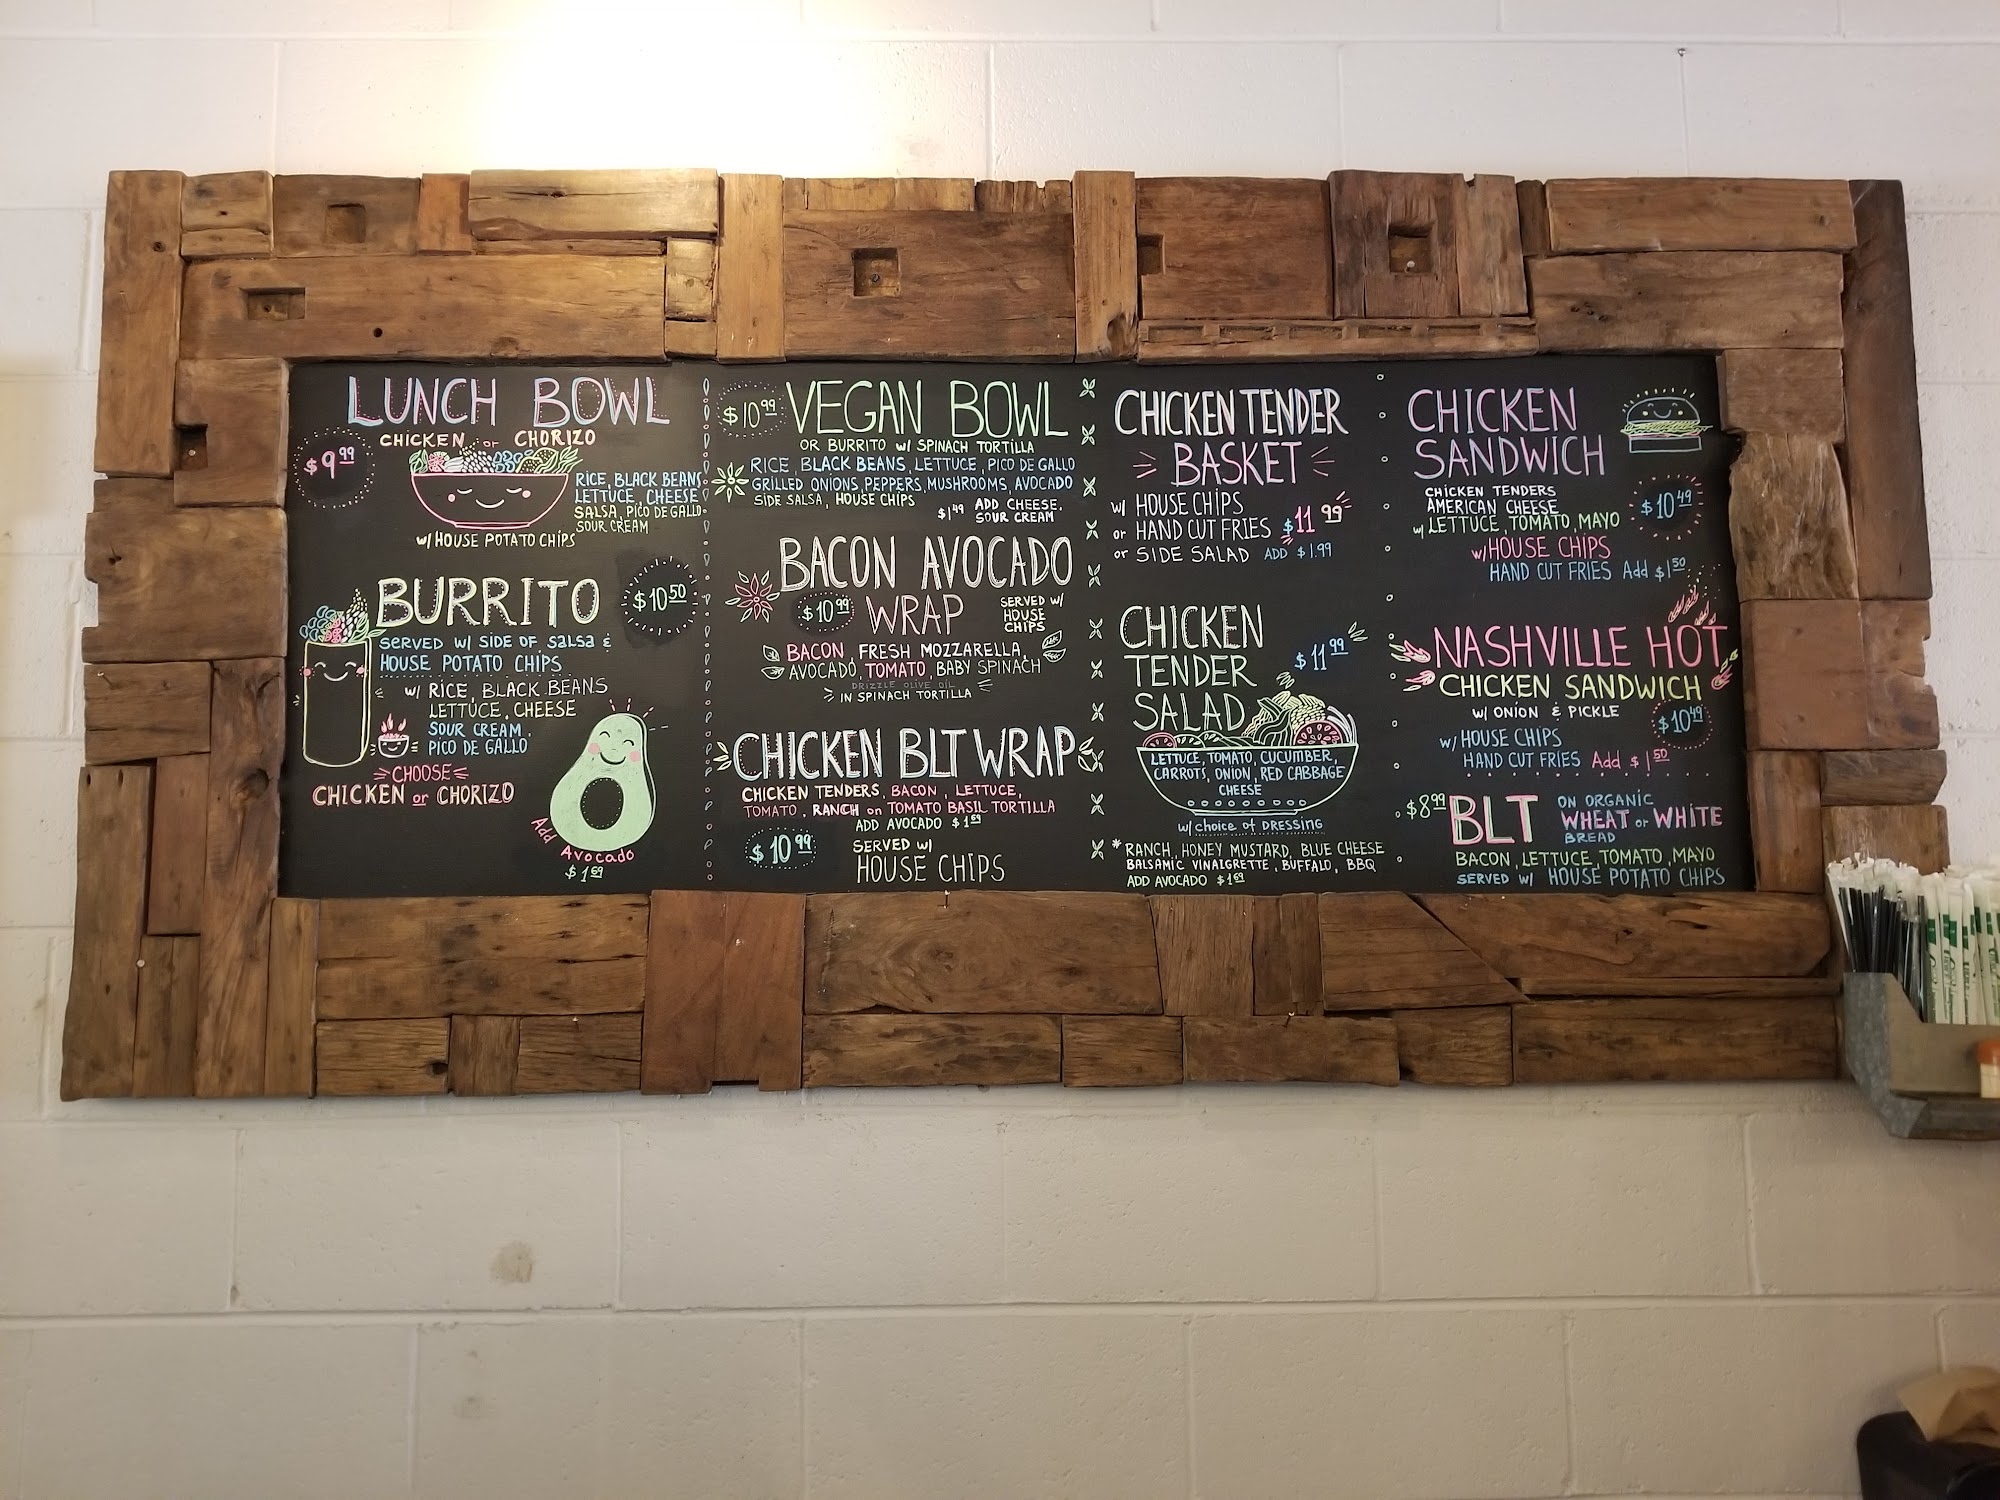 LUNCH BOWL
CHICKEN or CHORIZO
$9.99
RICE, BLACK BEANS
LETTUCE, CHEESE
SALSA, PICO DE GALLO
SOUR CREAM
w/ HOUSE POTATO CHIPS
BURRITO
$10.50
SERVED w/ SIDE OF SALSA &
HOUSE POTATO CHIPS
w/ RICE, BLACK BEANS
LETTUCE, CHEESE
SOUR CREAM,
PICO DE GALLO
CHOOSE
CHICKEN or CHORIZO
Add
Avocado
$1.69
$10.99
VEGAN BOWL
OR BURRITO w/ SPINACH TORTILLA
RICE, BLACK BEANS, LETTUCE, PICO DE GALLO
GRILLED ONIONS, PEPPERS, MUSHROOMS, AVOCADO
SIDE SALSA, HOUSE CHIPS
$1.49 ADD CHEESE,
SOUR CREAM
BACON AVOCADO
$10.99 WRAP
SERVED w/
HOUSE
CHIPS
BACON, FRESH MOZZARELLA,
AVOCADO, TOMATO, BABY SPINACH
DRIZZLE OLIVE OIL
IN SPINACH TORTILLA
CHICKEN BLT WRAP
CHICKEN TENDERS, BACON, LETTUCE,
TOMATO, RANCH on TOMATO BASIL TORTILLA
ADD AVOCADO $1.69
$10.99
SERVED w/
HOUSE CHIPS
CHICKEN TENDER
BASKET
w/ HOUSE CHIPS
or HAND CUT FRIES $11.99
or SIDE SALAD ADD $1.99
CHICKEN
TENDER
SALAD
$11.99
LETTUCE, TOMATO, CUCUMBER,
CARROTS, ONION, RED CABBAGE
CHEESE
w/ choice of DRESSING
* RANCH, HONEY MUSTARD, BLUE CHEESE
BALSAMIC VINAIGRETTE, BUFFALO, BBQ
ADD AVOCADO $1.69
CHICKEN
SANDWICH
CHICKEN TENDERS
AMERICAN CHEESE
w/ LETTUCE, TOMATO, MAYO
$10.49
w/ HOUSE CHIPS
HAND CUT FRIES Add $1.50
NASHVILLE HOT
CHICKEN SANDWICH
w/ ONION & PICKLE
$10.49
w/ HOUSE CHIPS
HAND CUT FRIES Add $1.50
$8.99 BLT
ON ORGANIC
WHEAT or WHITE
BREAD
BACON, LETTUCE, TOMATO, MAYO
SERVED w/ HOUSE POTATO CHIPS